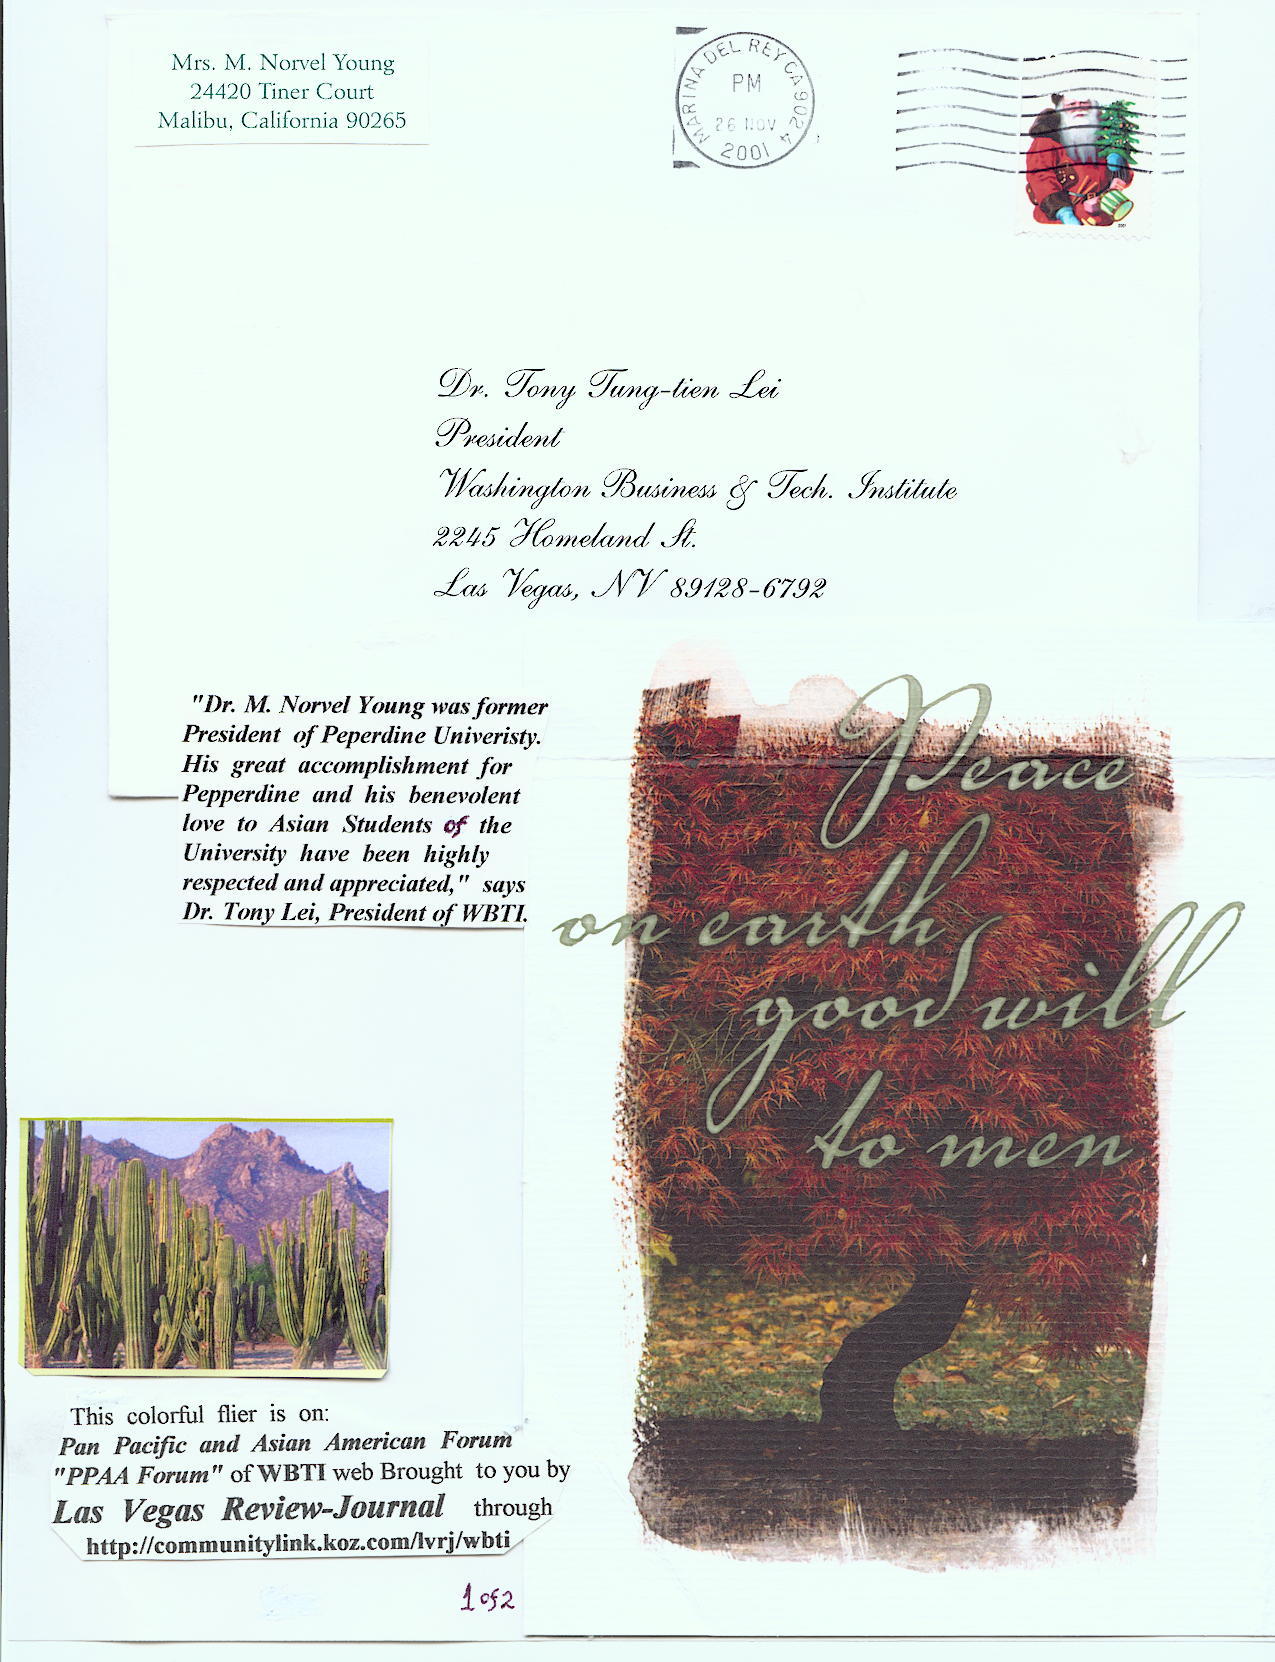 Mrs. M. Norvel Young
24420 Tiner Court
Malibu, California 90265
MARINA DEL REY CA 9024
PM
26 NOV
2001
2001
Dr. Tony Tung-tien Lei
President
Washington Business & Tech. Institute
2245 Homeland St.
Las Vegas, NV 89128-6792
"Dr. M. Norvel Young was former
President of Peperdine Univeristy.
His great accomplishment for
Pepperdine and his benevolent
love to Asian Students of the
University have been highly
respected and appreciated," says
Dr. Tony Lei, President of WBTI.
Peace
on earth
good will
to men
This colorful flier is on:
Pan Pacific and Asian American Forum
"PPAA Forum" of WBTI web Brought to you by
Las Vegas Review-Journal through
http://communitylink.koz.com/lvrj/wbti
1 of 2